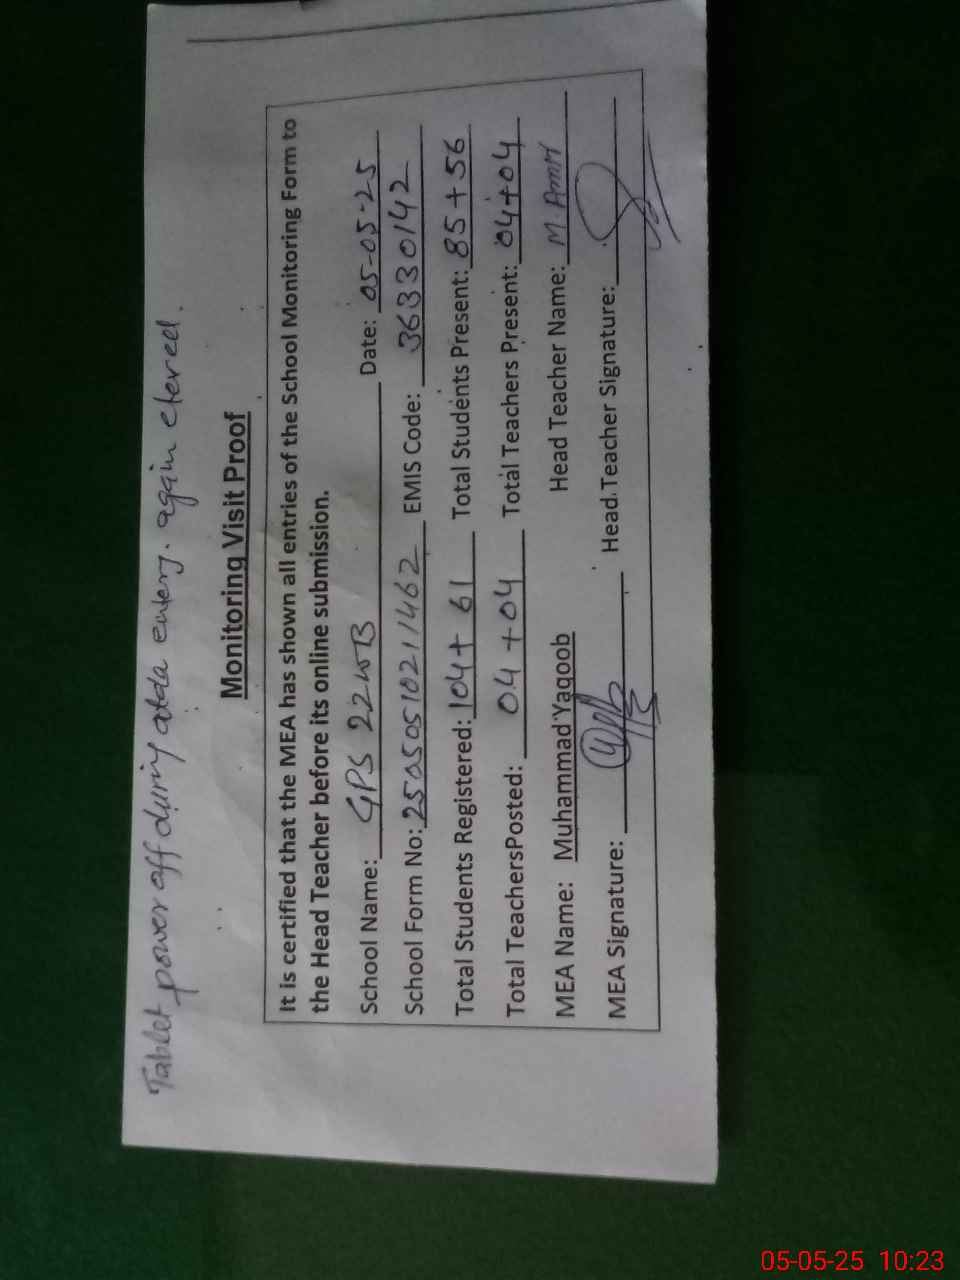 Tablet power off during atda entery. again etered.
Monitoring Visit Proof
It is certified that the MEA has shown all entries of the School Monitoring Form to
the Head Teacher before its online submission.
School Name: GPS 22WB Date: 05-05-25
School Form No: 25050510211462 EMIS Code: 36330142
Total Students Registered: 104+ 61 Total Students Present: 85+56
Total TeachersPosted: 04+04 Total Teachers Present: 04+04
MEA Name: Muhammad Yaqoob Head Teacher Name: M. Amin
MEA Signature: Head Teacher Signature:
05-05-25 10:23